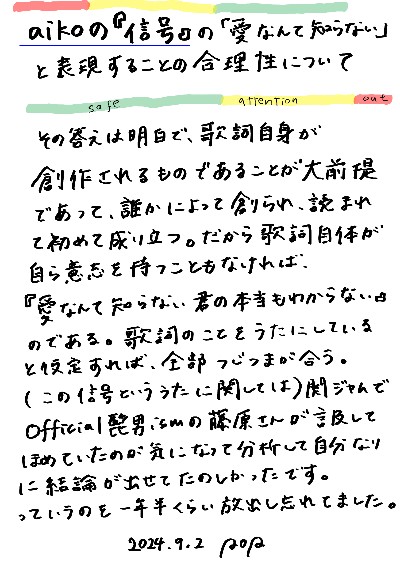 aikoの『信号』の「愛なんて知らない」
と表現することの合理性について
safe attention out
その答えは明白で、歌詞自身が
創作されるものであることが大前提
であって、誰かによって創られ、読まれ
て初めて成り立つ。だから歌詞自体が
自ら意志を持つこともなければ、
『愛なんて知らない 君の本当もわからない』
のである。歌詞のことをうたにしている
と仮定すれば、全部つじつまが合う。
(この信号といううたに関しては)関ジャムで
Official髭男ismの藤原さんが言及して
ほめていたのが気になって分析して自分なり
に結論が出せてたのしかったです。
っていうのを一年半くらい放出し忘れてました。
2024.9.2 pop